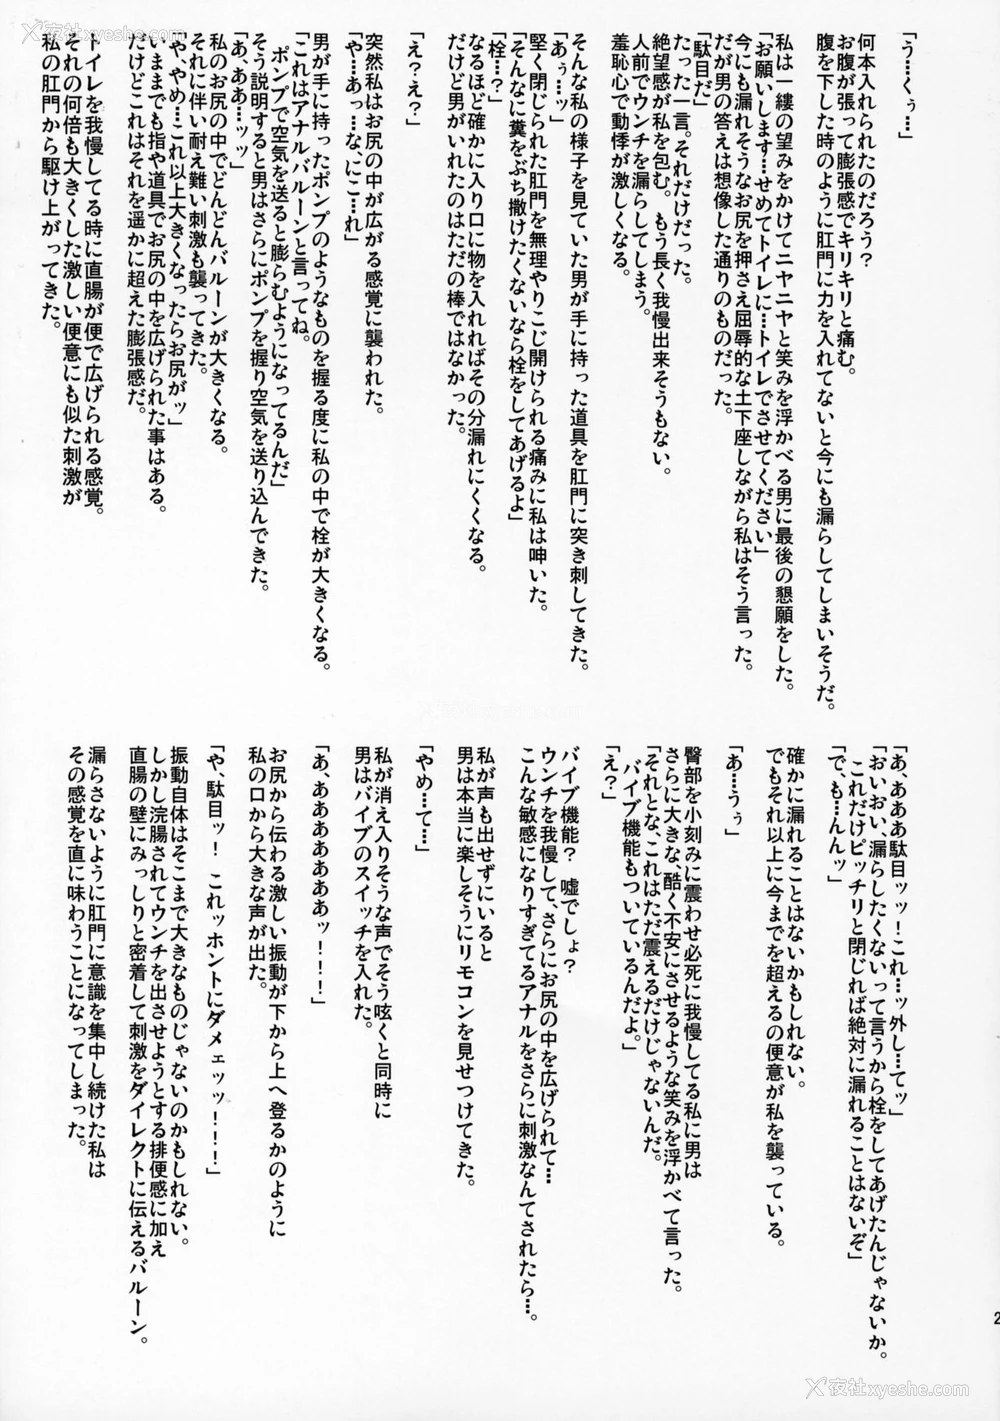 X夜社xyeshe.com
「う…くぅ…」
何本入れられたのだろう？
お腹が張って膨張感でキリキリと痛む。
腹を下した時のように肛門に力を入れてないと今にも漏らしてしまいそうだ。
私は一縷の望みをかけてニヤニヤと笑みを浮かべる男に最後の懇願をした。
「お願いします…せめてトイレに…トイレでさせてください」
今にも漏れそうなお尻を押さえ屈辱的な土下座しながら私はそう言った。
だが男の答えは想像した通りのものだった。
「駄目だ」
たった一言。それだけだった。
絶望感が私を包む。もう長く我慢出来そうもない。
人前でウンチを漏らしてしまう。
羞恥心で動悸が激しくなる。
そんな私の様子を見ていた男が手に持った道具を肛門に突き刺してきた。
「あぅ…ッ」
堅く閉じられた肛門を無理やりこじ開けられる痛みに私は呻いた。
「そんなに糞をぶち撒けたくないなら栓をしてあげるよ」
「栓…？」
なるほど確かに入り口に物を入れればその分漏れにくくなる。
だけど男がいれたのはただの棒ではなかった。
「え？え？」
突然私はお尻の中が広がる感覚に襲われた。
「や…あっ…な、にこ…れ」
男が手に持ったポンプのようなものを握る度に私の中で栓が大きくなる。
「これはアナルバルーンと言ってね。
ポンプで空気を送ると膨らむようになってるんだ」
そう説明すると男はさらにポンプを握り空気を送り込んできた。
「あ、ああ…ッッ」
私のお尻の中でどんどんバルーンが大きくなる。
それに伴い耐え難い刺激も襲ってきた。
「や、やめ…これ以上大きくなったらお尻がッ」
いままでも指や道具でお尻の中を広げられた事はある。
だけどこれはそれを遥かに超えた膨張感だ。
トイレを我慢してる時に直腸が便で広げられる感覚。
それの何倍も大きくした激しい便意にも似た刺激が
私の肛門から駆け上がってきた。
「あ、あああ駄目ッッ！これ…ッ外し…てッ」
「おいおい、漏らしたくないって言うから栓をしてあげたんじゃないか。
これだけピッチリと閉じれば絶対に漏れることはないぞ」
「で、も…んんッ」
確かに漏れることはないかもしれない。
でもそれ以上に今までを超えるの便意が私を襲っている。
「あ…うぅ」
臀部を小刻みに震わせ必死に我慢してる私に男は
さらに大きな、酷く不安にさせるような笑みを浮かべて言った。
「それとな、これはただ震えるだけじゃないんだ。
バイブ機能もついているんだよ。」
「え？」
バイブ機能？　嘘でしょ？
ウンチを我慢して、さらにお尻の中を広げられて…
こんな敏感になりすぎてるアナルをさらに刺激なんてされたら…。
私が声も出せずにいると
男は本当に楽しそうにリモコンを見せつけてきた。
「やめ…て…」
私が消え入りそうな声でそう呟くと同時に
男はバイブのスイッチを入れた。
「あ、ああああああぁッ！！！」
お尻から伝わる激しい振動が下から上へ登るかのように
私の口から大きな声が出た。
「や、駄目ッ！　これッホントにダメェッッ！！！」
振動自体はそこまで大きなものじゃないのかもしれない。
しかし浣腸されてウンチを出させようとする排便感に加え
直腸の壁にみっしりと密着して刺激をダイレクトに伝えるバルーン。
漏らさないように肛門に意識を集中し続けた私は
その感覚を直に味わうことになってしまった。
2
X夜社xyeshe.com